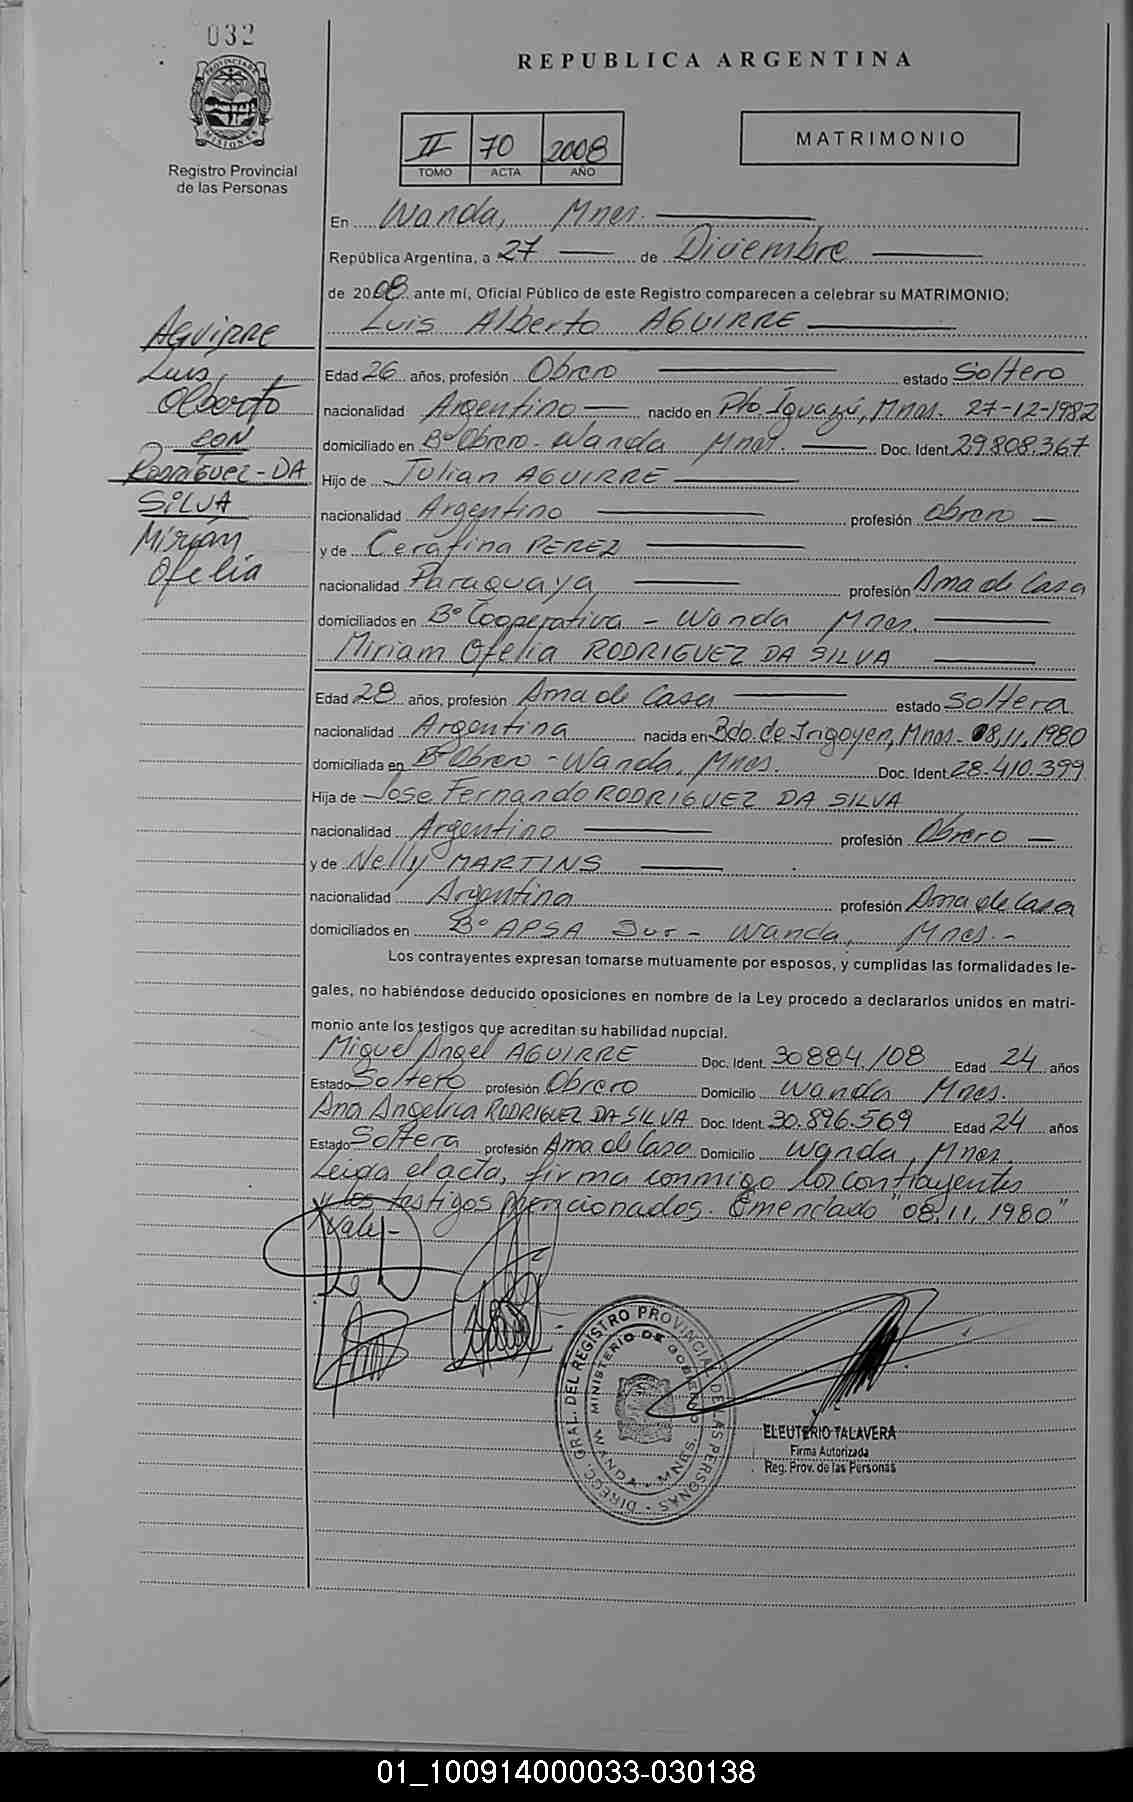 032
PROVINCIA DE MISIONES
Registro Provincial
de las Personas
REPUBLICA ARGENTINA
II 70 2008
TOMO ACTA AÑO
MATRIMONIO
En Wanda, Mnes.
República Argentina, a 27 de Diciembre
de 2008 ante mí, Oficial Público de este Registro comparecen a celebrar su MATRIMONIO:
Luis Alberto AGUIRRE
AGUIRRE
Luis
Alberto
CON
RODRIGUEZ-DA
SILVA
Miriam
Ofelia
Edad 26 años, profesión Obrero estado Soltero
nacionalidad Argentino nacido en Pto. Iguazú, Mnes. 27-12-1982
domiciliado en Bº Obrero - Wanda Mnes. Doc. Ident. 29.808.367
Hijo de Julian AGUIRRE
nacionalidad Argentino profesión obrero
y de Cerafina PEREZ
nacionalidad Paraguaya profesión Ama de Casa
domiciliados en Bº Cooperativa - Wanda Mnes.
Miriam Ofelia RODRIGUEZ DA SILVA
Edad 28 años, profesión Ama de Casa estado Soltera
nacionalidad Argentina nacida en Bdo. de Irigoyen, Mnes - 08.11.1980
domiciliada en Bº Obrero - Wanda, Mnes. Doc. Ident. 28.410.399
Hija de Jose Fernando RODRIGUEZ DA SILVA
nacionalidad Argentino profesión Obrero
y de Nelly MARTINS
nacionalidad Argentina profesión Ama de Casa
domiciliados en Bº APSA Sur - Wanda, Mnes. -
Los contrayentes expresan tomarse mutuamente por esposos, y cumplidas las formalidades le-
gales, no habiéndose deducido oposiciones en nombre de la Ley procedo a declararlos unidos en matri-
monio ante los testigos que acreditan su habilidad nupcial.
Miguel Angel AGUIRRE Doc. Ident. 30884.108 Edad 24 años
Estado Soltero profesión Obrero Domicilio Wanda Mnes.
Ana Angelica RODRIGUEZ DA SILVA Doc. Ident. 30.896.569 Edad 24 años
Estado Soltera profesión Ama de Casa Domicilio Wanda, Mnes.
Leida el acta, firma conmigo los contrayentes
y los testigos mencionados. Emendado "08.11.1980"
Vale -
DIRECC. GRAL. DEL REGISTRO PROVINCIAL DE LAS PERSONAS
MINISTERIO DE GOBIERNO
WANDA - MNES.
ELEUTERIO TALAVERA
Firma Autorizada
Reg. Prov. de las Personas
01_100914000033-030138